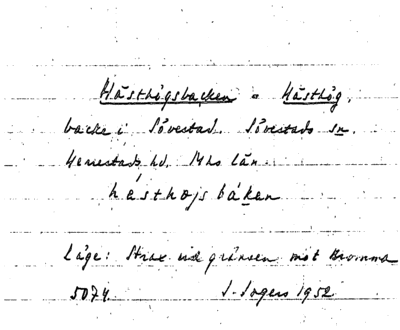 Hästhögsbacken = Hästhög,
backe i Sövestad. Sövestads sn.
Herrestads hd. Mhs län.
hásthøjs báken
Läge: Strax vid gränsen mot Bromma
5074. 1952